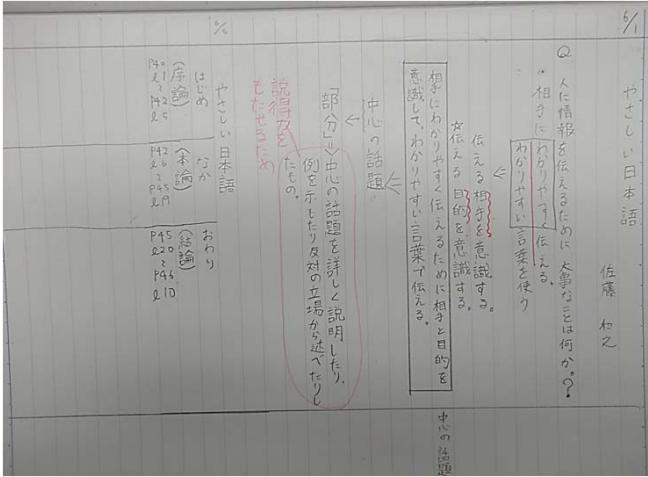 6/1
やさしい日本語
佐藤 和之
Q. 人に情報を伝えるために大事なことは何か。?
・相手にわかりやすく伝える。
わかりやすい言葉を使う
⇐
伝える相手を意識する。
☆伝える目的を意識する。
相手にわかりやすく伝えるために相手と目的を
意識して、わかりやすい言葉で伝える。
中心の話題
⇐
中心の話題
←
「部分」⇒中心の話題を詳しく説明したり、
例を示したり反対の立場から述べたりし
たもの。
説得力を
もたせるため
やさしい日本語
はじめ
(序論)
P40
l1
~
P42
l5
なか
(本論)
P42
l6
~
P45
l19
おわり
(結論)
P45
l20
~
P46
l10